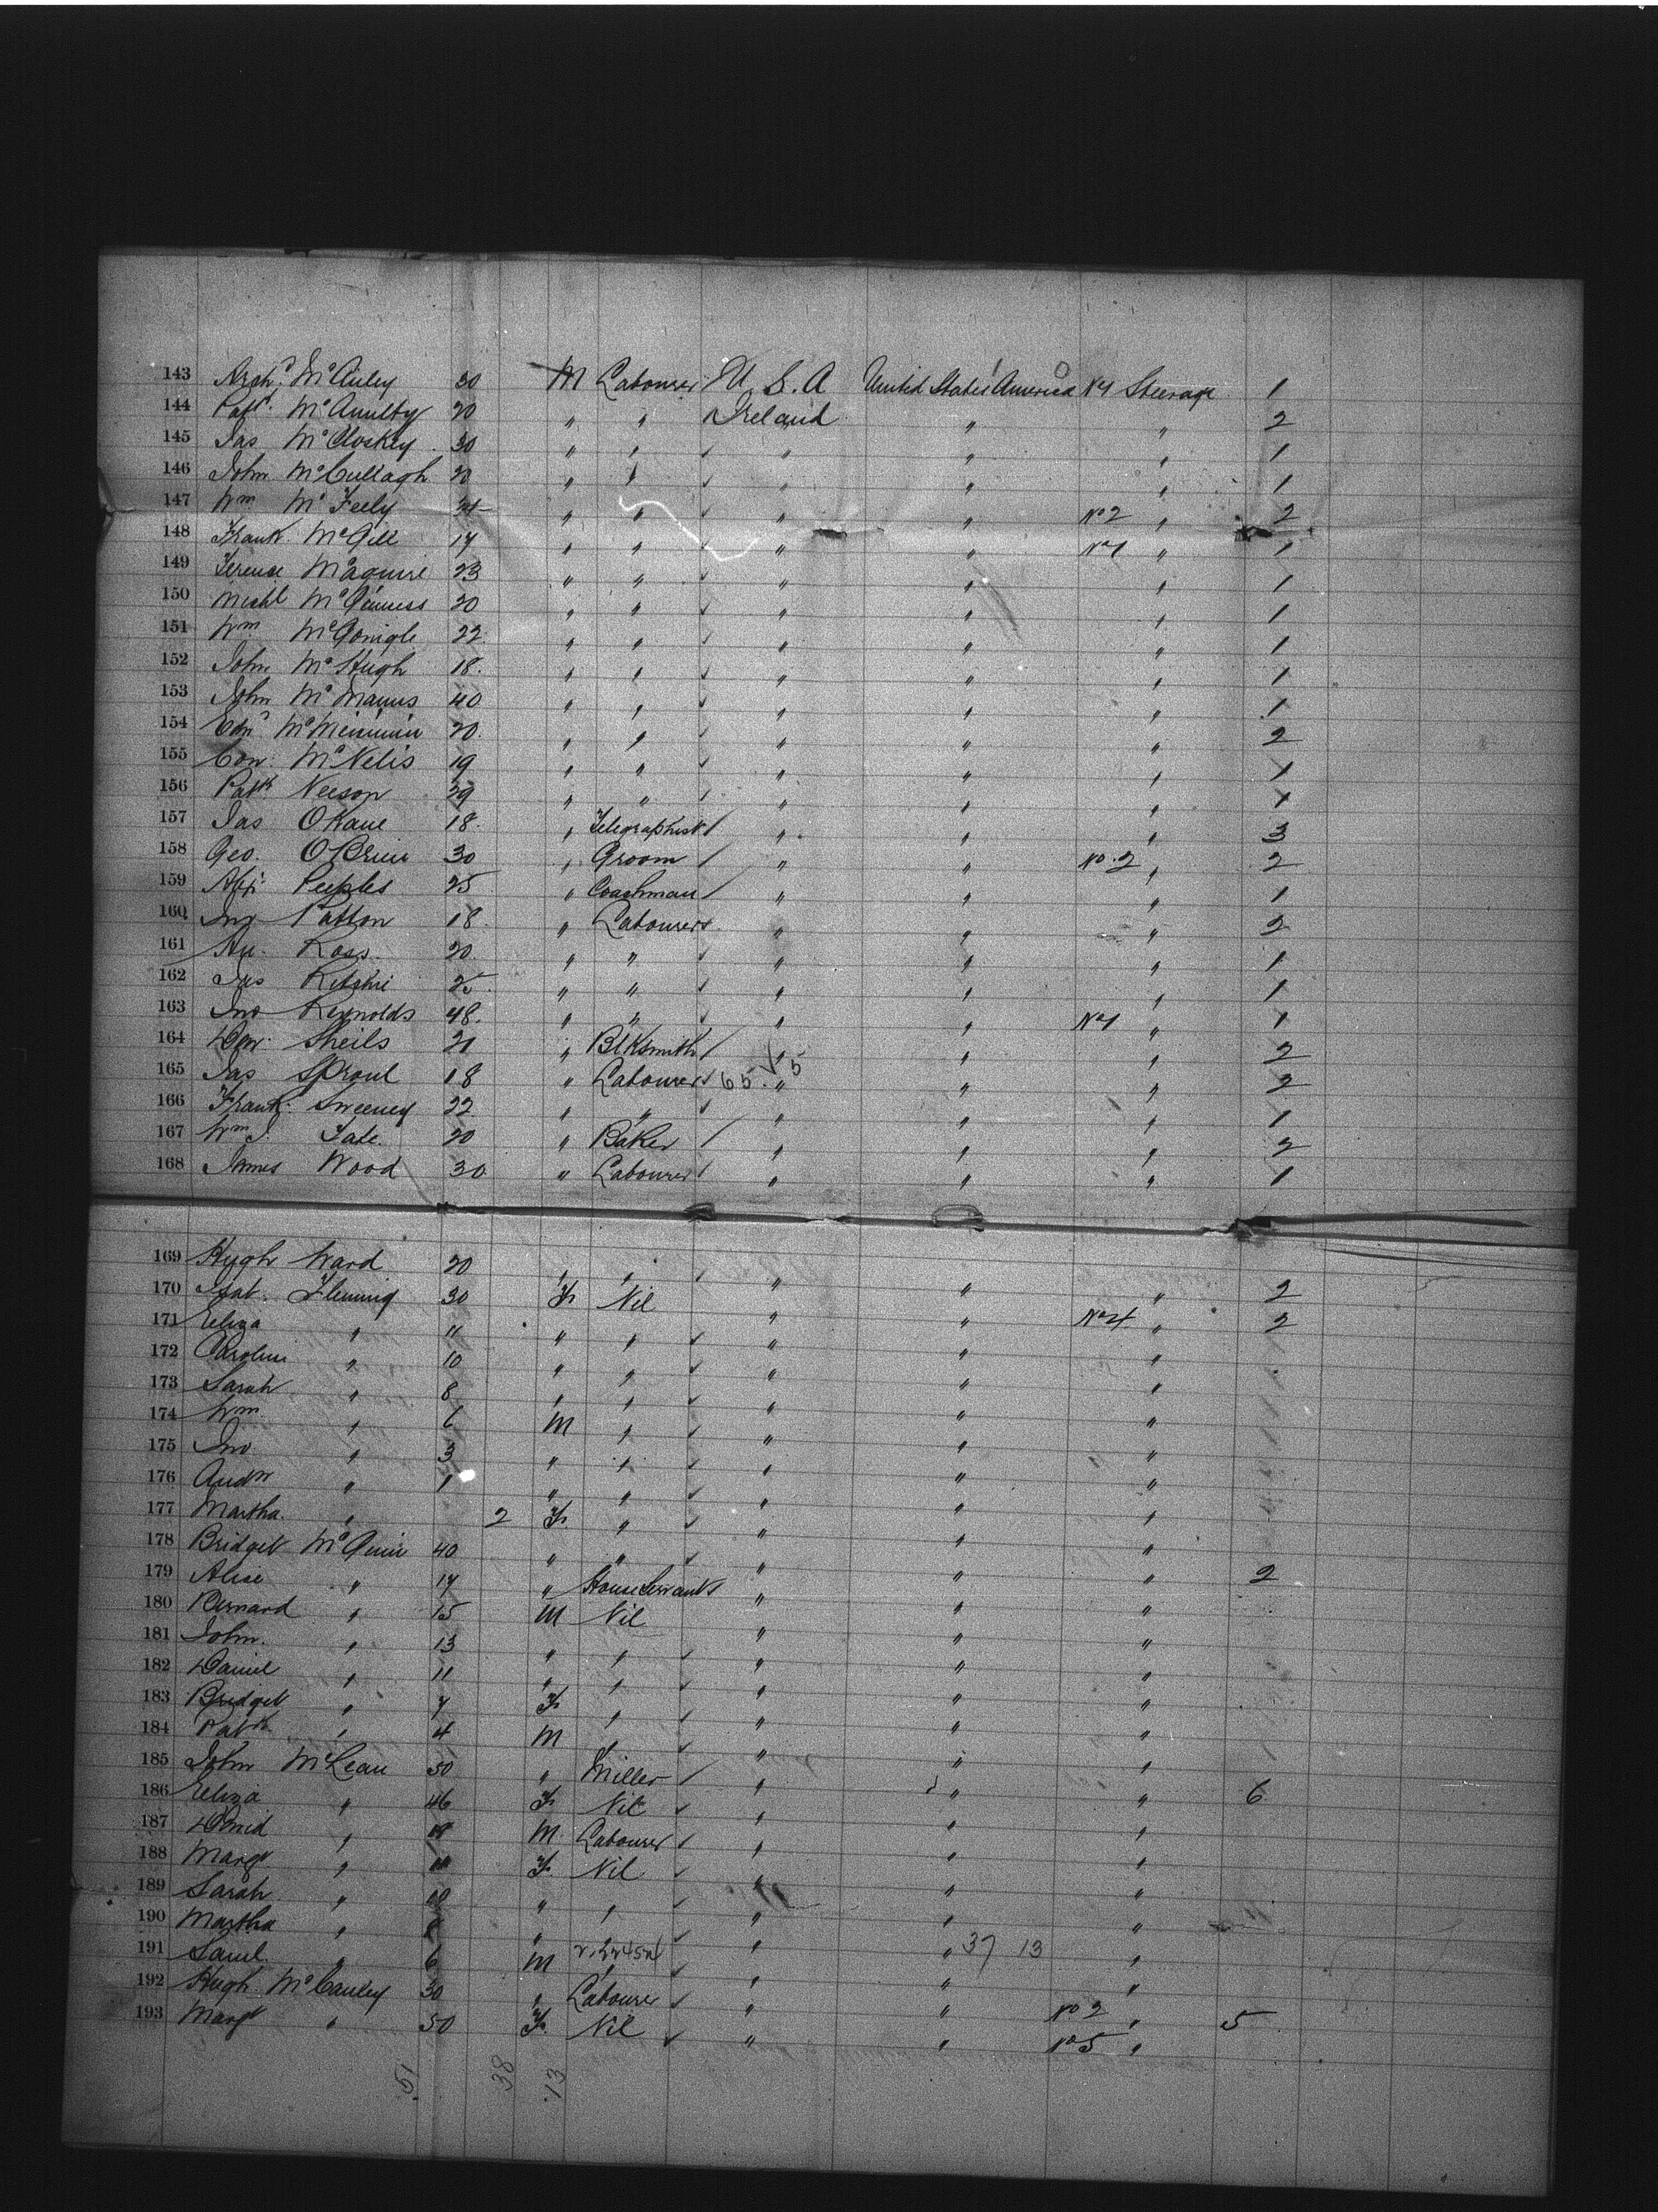 143 Archd McAuley 30 M Labourer U.S.A United States America No 1 Steerage 1
144 Patk McAnulty 20 " " Ireland " " 2
145 Jas McCloskey 30 " " " " " 1
146 John McCullagh 20 " " " " " 1
147 Wm McFeely 24 " " " " No 2 " 2
148 Frank McGill 17 " " " " No 1 " 1
149 Terence Maguire 23 " " " " " 1
150 Michl McGinness 20 " " " " " 1
151 Wm McGonigle 22 " " " " " 1
152 John McHugh 18 " " " " " 1
153 John McManus 40 " " " " " 1
154 Edwd McMenimin 20 " " " " " 2
155 Con McNelis 19 " " " " " 1
156 Patk Neeson 29 " " " " " 1
157 Jas OKane 18 " Telegraphist " " " 3
158 Geo. OBrien 30 " Groom " " No. 2 " 2
159 Peebles 25 " Coachman " " " 1
160 Jno Patton 18 " Labourer " " " 2
161 Hu. Ross 20 " " " " " 1
162 Jas Ritchie 25 " " " " " 1
163 Jno Reynolds 48 " " " " No 1 " 1
164 Sheils 21 " Blksmith " " " 2
165 Jas Sproul 18 " Labourer 65 5 " " " 2
166 Frank Sweeney 22 " " " " " 1
167 Wm J. Tate 20 " Baker " " " 2
168 James Wood 30 " Labourer " " " 1
169 Hugh Ward 20 " " " " " 2
170 Fleming 30 F Nil " " No 4 " 2
171 Eliza " 11 " " " " "
172 Caroline " 10 " " " " "
173 Sarah " 8 " " " " "
174 Wm " 6 M " " " "
175 Jno " 3 " " " " "
176 Andw " 1 " " " " "
177 Martha " 2 F " " " "
178 Bridget McQuin 40 " " " " " 2
179 Alice " 17 " House Servant " " "
180 Bernard " 15 M Nil " " "
181 John " 13 " " " " "
182 Daniel " 11 " " " " "
183 Bridget " 7 F " " " "
184 Patk " 4 M " " " "
185 John McLean 50 " Miller " " " 6
186 Eliza " 46 F Nil " " "
187 David " M Labourer " " "
188 Margt " F Nil " " "
189 Sarah " 10 " " " " "
190 Martha " 8 " " " " "
191 Saml " 6 M " " " 37 13 "
192 Hugh McCauley 30 " Labourer " " No 2 " 5
193 Margt " 50 F Nil " " No 5 "
51 38 13